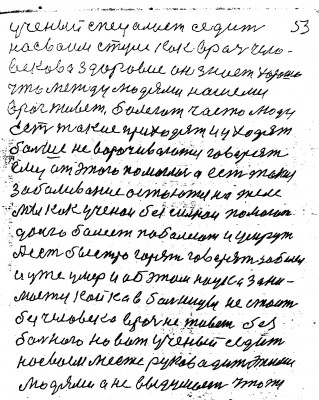 ученый спецалист седит 53
на своим стули как врач чело-
векова здоровие он знает хорошо
что между людями нашеми
враг живет. болеют часто люди
есть такие приходят и уходят
больше не ворочиваются говорят
ему от этого помогли а есть такаи
заболивание остаются на деле
мы как ученои без силнаи помогат
долго болеют поболеют и умрут
А есть быстро горят говорят забыли
и уже умер и об этом наука зани-
маится койка в больници не стоит
без человека врач не живет без
больного но вот ученый седит
на своем месте руководит этими
людями а не выдумает что ты